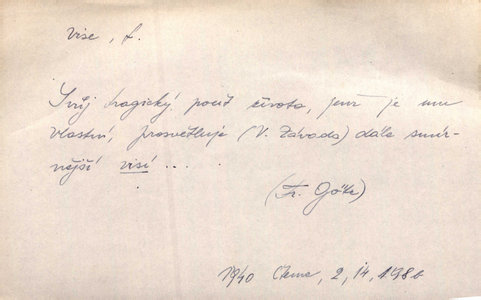 vise, f.
Svůj tragický pocit života, jenž je mu
vlastní, prosvětluje (V. Závada) dále smír-
nější visí ...
(Fr. Götz)
1940 2, 14, 198